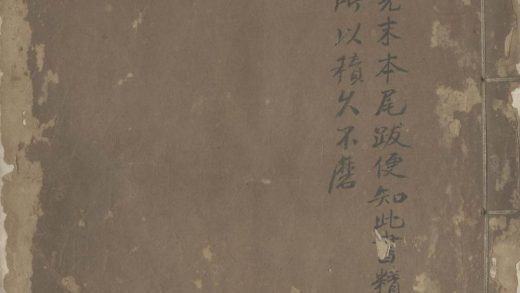 末本尾跋便知此書精
所以積久不磨